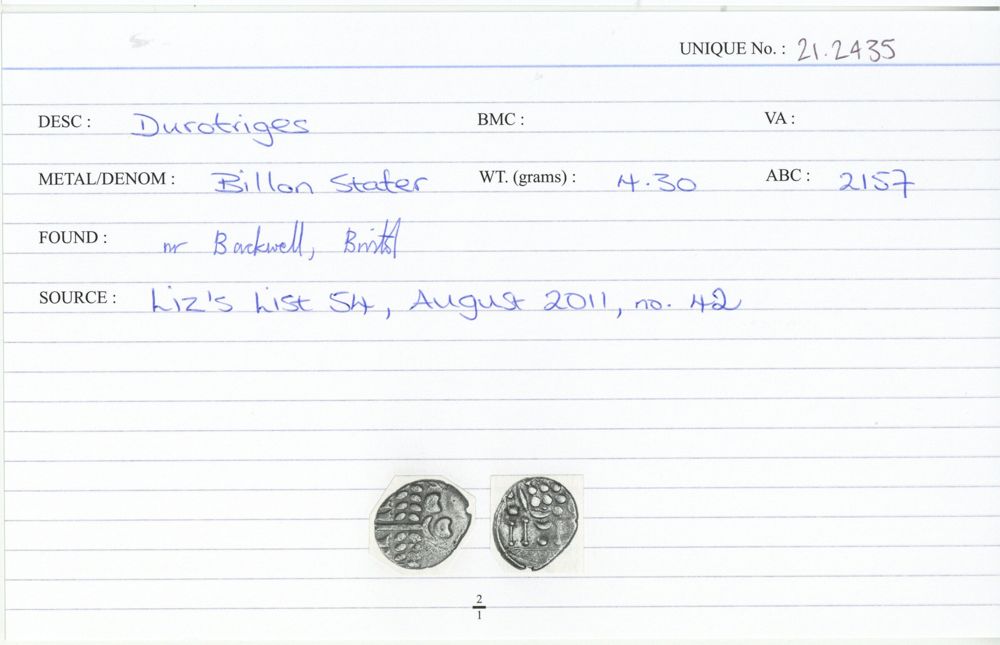 UNIQUE No. : 21.2435
DESC : Durotriges BMC : VA :
METAL/DENOM : Billon Stater WT. (grams) : 4.30 ABC : 2157
FOUND : nr Backwell, Bristol
SOURCE : Liz's List 54, August 2011, no. 42
2
1